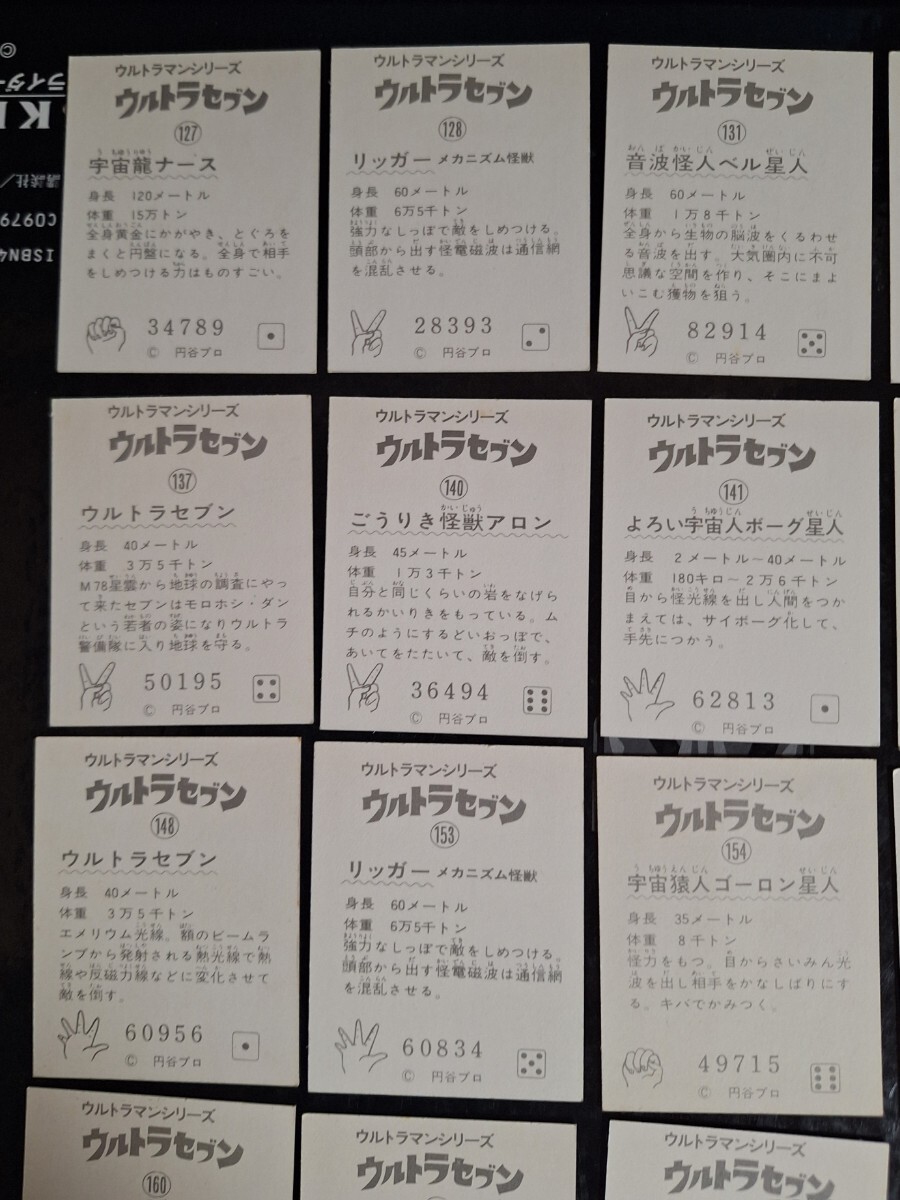 ウルトラマンシリーズ
ウルトラセブン
127
宇宙龍ナース
身長 120メートル
体重 15万トン
全身黄金にかがやき、とぐろを
まくと円盤になる。全身で相手
をしめつける力はものすごい。
34789
© 円谷プロ
ウルトラマンシリーズ
ウルトラセブン
128
リッガー メカニズム怪獣
身長 60メートル
体重 6万5千トン
強力なしっぽで敵をしめつける。
頭部から出す怪電磁波は通信網
を混乱させる。
28393
© 円谷プロ
ウルトラマンシリーズ
ウルトラセブン
131
音波怪人ベル星人
身長 60メートル
体重 1万8千トン
全身から生物の脳波をくるわせ
る音波を出す。大気圏内に不可
思議な空間を作り、そこにまよ
いこむ獲物を狙う。
82914
© 円谷プロ
ウルトラマンシリーズ
ウルトラセブン
137
ウルトラセブン
身長 40メートル
体重 3万5千トン
M78星雲から地球の調査にやっ
て来たセブンはモロホシ・ダン
という若者の姿になりウルトラ
警備隊に入り地球を守る。
50195
© 円谷プロ
ウルトラマンシリーズ
ウルトラセブン
140
ごうりき怪獣アロン
身長 45メートル
体重 1万3千トン
自分と同じくらいの岩をなげら
れるかいりきをもっている。ム
チのようにするどいおっぽで、
あいてをたたいて、敵を倒す。
36494
© 円谷プロ
ウルトラマンシリーズ
ウルトラセブン
141
よろい宇宙人ボーグ星人
身長 2メートル〜40メートル
体重 180キロ〜2万6千トン
目から怪光線を出し人間をつか
まえては、サイボーグ化して、
手先につかう。
62813
© 円谷プロ
ウルトラマンシリーズ
ウルトラセブン
148
ウルトラセブン
身長 40メートル
体重 3万5千トン
エメリウム光線。額のビームラ
ンプから発射される熱光線で熱
線や反磁力線などに変化させて
敵を倒す。
60956
© 円谷プロ
ウルトラマンシリーズ
ウルトラセブン
153
リッガー メカニズム怪獣
身長 60メートル
体重 6万5千トン
強力なしっぽで敵をしめつける。
頭部から出す怪電磁波は通信網
を混乱させる。
60834
© 円谷プロ
ウルトラマンシリーズ
ウルトラセブン
154
宇宙猿人ゴーロン星人
身長 35メートル
体重 8千トン
怪力をもつ。目からさいみん光
波を出し相手をかなしばりにす
る。キバでかみつく。
49715
© 円谷プロ
ウルトラマンシリーズ
ウルトラセブン
160
ウルトラマンシリーズ
ウルトラセブン
ウルトラマンシリーズ
ウルトラセブン
©
ライダー
講談社/
C0979
ISBN4